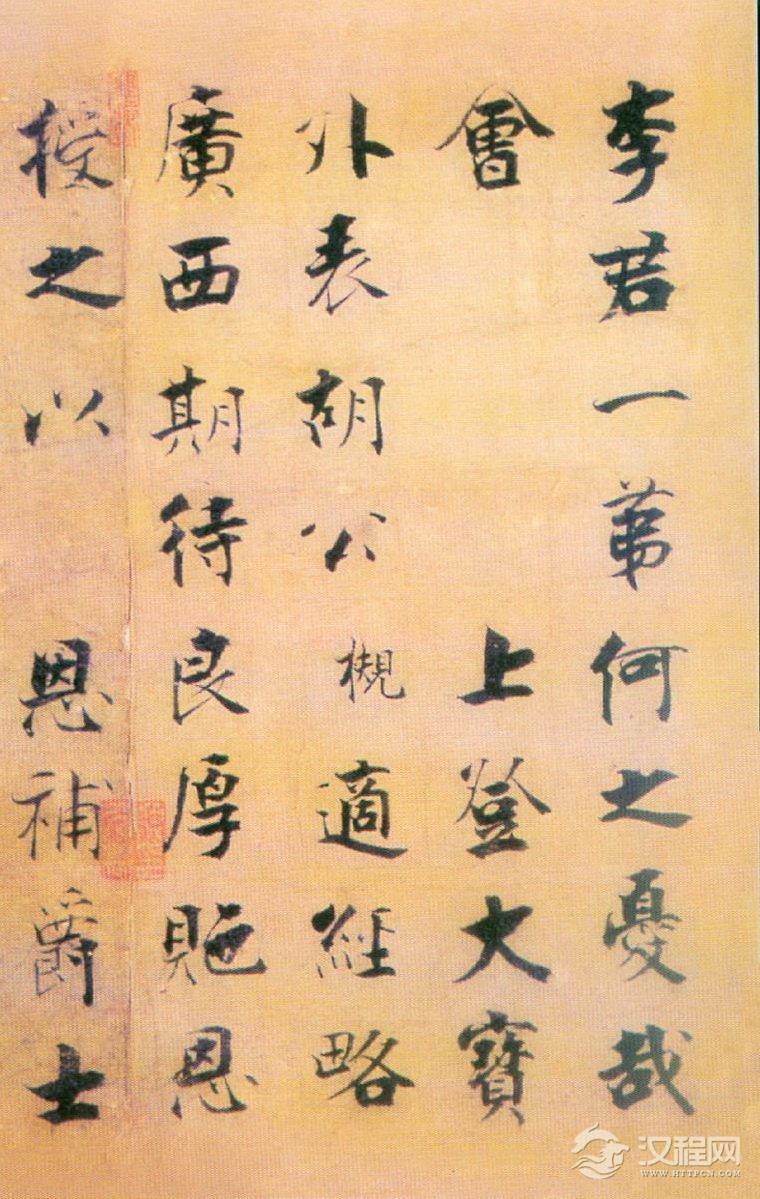 李君一第何之憂哉
會 上登大寶
外表胡公槻適經略
廣西期待良厚貤恩
授之以 恩補爵士
汉程网
WWW.HTTPCN.COM